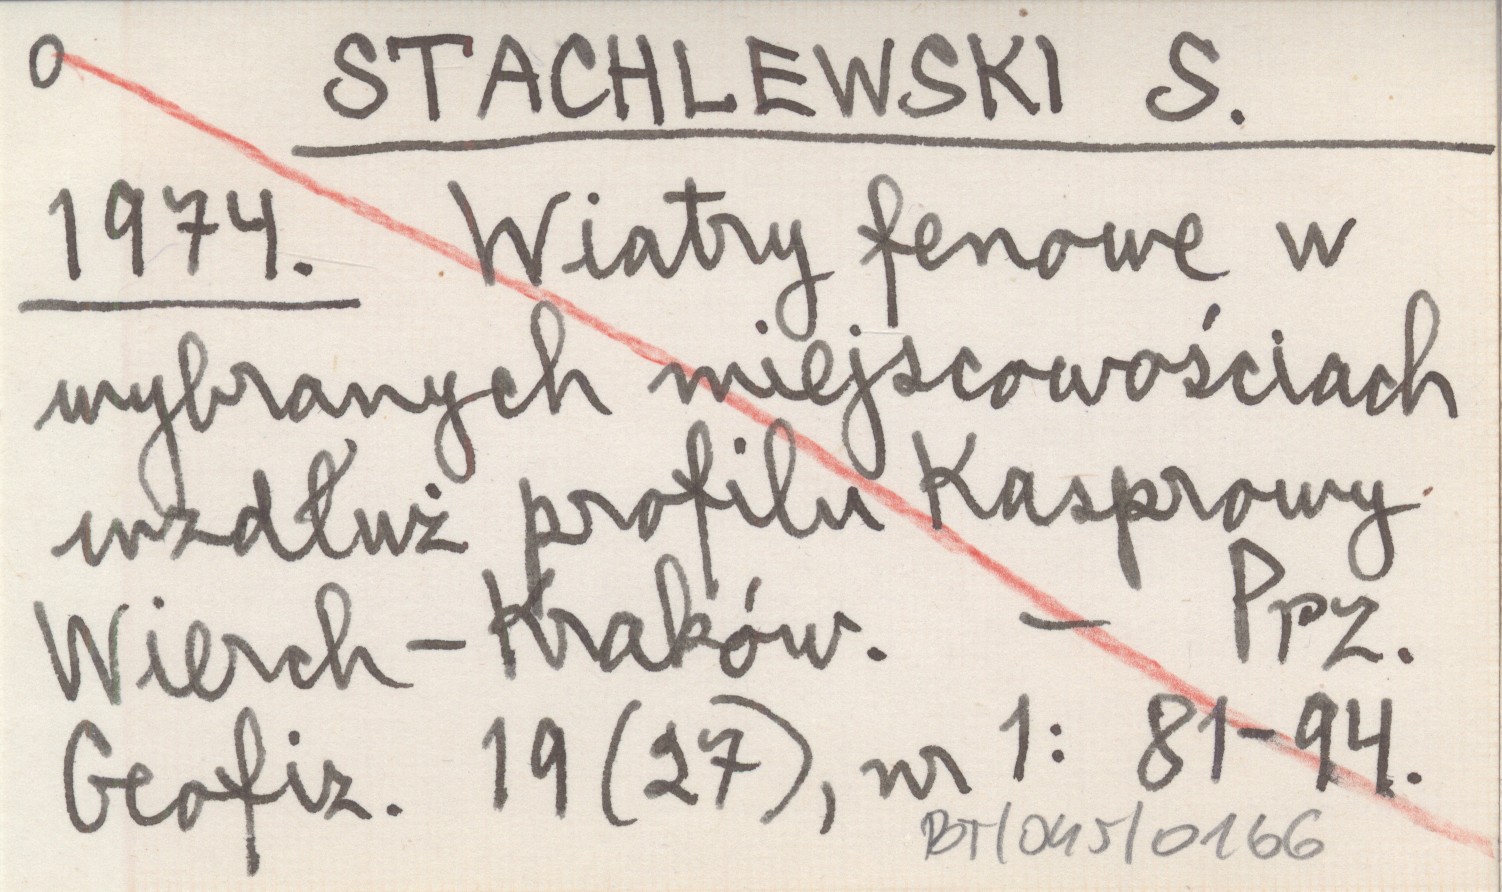 O STACHLEWSKI S.
1974. Wiatry fenowe w
wybranych miejscowościach
wzdłuż profilu Kasprowy
Wierch - Kraków. - Ppz.
Geofiz. 19 (27), nr 1: 81-94.
BT/045/0166